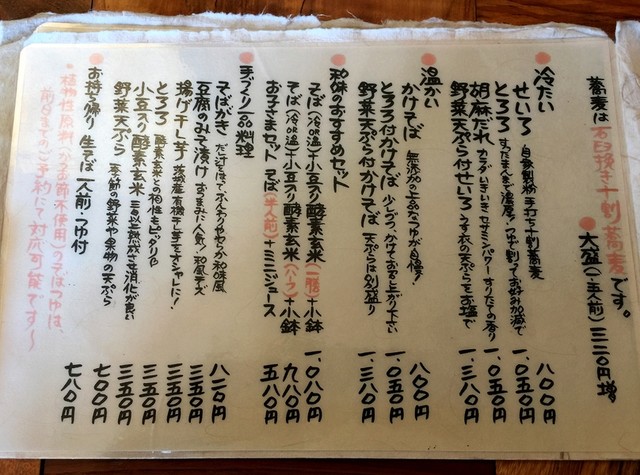 蕎麦は石臼挽き十割蕎麦です。
大盛(一半人前)三三〇円増
冷たい
せいろ 自家製粉手打ち十割蕎麦 八〇〇円
とろろ すったまんまで濃厚!つゆで割ってお好み加減で 一、〇五〇円
胡麻だれ カラダいきいきセサミンパワー すりたての香り 一、〇五〇円
野菜天ぷら付せいろ うす衣の天ぷらをお塩で 一、三八〇円
温かい
かけそば 無添加の上品なつゆが自慢! 八〇〇円
とろろ付かけそば 少しづつ、かけてお召し上がり下さい 一、〇五〇円
野菜天ぷら付かけそば 天ぷらは別盛り 一、三八〇円
和味のおすすめセット
そば(冷or温)+小豆入り酵素玄米(一膳)+小鉢 一、〇八〇円
そば(冷or温)+小豆入り酵素玄米(ハーフ)+小鉢 九八〇円
お子さまセット そば(半人前)+ミニジュース 五八〇円
手づくり一品料理
そばがき だし汁はって、ふんわりやわらか和味風 八二〇円
豆腐のみそ漬け おつまみに人気!和風チーズ 三五〇円
揚げ干し芋 茨城産有機干し芋でオシャレに! 三五〇円
とろろ 酵素玄米との相性もピッタリ 三五〇円
小豆入り酵素玄米 三日以上熟成させ消化が良い 三五〇円
野菜天ぷら 季節の野菜や果物の天ぷら 三五〇円
お持ち帰り 生そば一人前・つゆ付 七〇〇円
・植物性原料(かつお節不使用)のそばつゆは、 七八〇円
前日までのご予約にて対応可能です〜